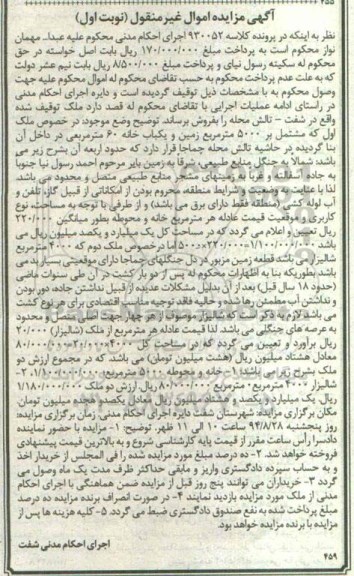 ۴۵۵
آگهی مزایده اموال غیرمنقول (نوبت اول)
نظر به اینکه در پرونده کلاسه ۹۳۰۰۵۲ اجرای احکام مدنی محکوم علیه عبدا... مهمان
نواز محکوم است به پرداخت مبلغ ۱۷۰/۰۰۰/۰۰۰ ریال بابت اصل خواسته در حق
محکوم له سکینه رسول نیای و پرداخت مبلغ ۸/۵۰۰/۰۰۰ ریال بابت نیم عشر دولت
که به علت عدم پرداخت محکوم به حسب تقاضای محکوم له اموال محکوم علیه جهت
وصول محکوم به با مشخصات ذیل توقیف گردیده است و دایره اجرای احکام مدنی
در راستای ادامه عملیات اجرایی با تقاضای محکوم له قصد دارد ملک توقیف شده
واقع در شفت - نالش محله را بفروش برساند. توضیح وضع موجود: در خصوص ملک
اول که مشتمل بر ۵۰۰۰ مترمربع زمین و یکباب خانه ۶۰ مترمربعی در داخل آن
بنا گردیده در حاشیه نالش محله چماچا قرار دارد که حدود اربعه آن بشرح زیر می
باشد: شمالا به جنگل منابع طبیعی، شرقا به زمین بایر مرحوم احمد رسول نیا جنوبا
به جاده آسفالت و غربا به زمینهای مشجر منابع طبیعی متصل و محدود می باشد.
لذا با عنایت به وضعیت و شرایط منطقه، محروم بودن از امکاناتی از قبیل گاز، تلفن و
آب لوله کشی (منطقه فقط دارای برق می باشد) و از طرفی با توجه به مساحت، نوع
کاربری و موقعیت قیمت عادله هر مترمربع خانه و محوطه بطور میانگین ۲۲۰/۰۰۰
ریال تعیین و اعلام می گردد که در مساحت کل یک میلیارد و یکصد میلیون ریال می
باشد ۱/۱۰۰/۰۰۰/۰۰۰=۲۲۰/۰۰۰×۵۰۰۰ اما در خصوص ملک دوم که ۴۰۰۰ مترمربع
شالیزار می باشد قطعه زمین مزبور در دل جنگلهای چماچا دارای موقعیتی بسیار بد می
باشد بطوریکه بنا به اظهارات محکوم له پس از دو بار کشت در آن طی سنوات ماضی
(حدود ۱۸ سال قبل) بعد از آن بدلیل مشکلات عدیده از قبیل نداشتن جاده، دور بودن
و نداشتن آب مطمئن رها شده و حالیه فاقد توجیه مناسب اقتصادی برای هر نوع کشت
می باشد لازم به ذکر است که شالیزار موصوف از هر چهار جهت اصلی متصل و محدود
به عرصه های جنگلی می باشد لذا قیمت عادله هر مترمربع از ملک (شالیزار) ۲۰/۰۰۰
ریال برآورد و تعیین می گردد که در مساحت کل ۴۰۰۰×۲۰/۰۰۰=۸۰/۰۰۰/۰۰۰
معادل هشتاد میلیون ریال (هشت میلیون تومان) می باشد که در مجموع ارزش دو
ملک بشرح زیر می باشد: ۱- خانه و محوطه ۵۰۰۰ مترمربع، ۱/۱۰۰/۰۰۰/۰۰۰، ۲-
شالیزار ۴۰۰۰ مترمربع - مترمربع ۸۰/۰۰۰/۰۰۰ ریال، ارزش دو ملک ۱/۱۸۰/۰۰۰/۰۰۰
ریال، یک میلیارد و یکصد و هشتاد میلیون ریال معادل یکصد و هجده میلیون تومان.
مکان برگزاری مزایده: شهرستان شفت دایره اجرای احکام مدنی، زمان برگزاری مزایده:
روز پنجشنبه ۹۴/۸/۲۸ ساعت ۱۰ الی ۱۱ ظهر. توضیح: ۱- مزایده با حضور نماینده
دادسرا رأس ساعت مقرر از قیمت پایه کارشناسی شروع و به بالاترین قیمت پیشنهادی
فروخته خواهد شد. ۲- ده درصد مبلغ مورد مزایده شده را فی المجلس از خریدار اخذ
و به حساب سپرده دادگستری واریز و مابقی حداکثر ظرف مدت یک ماه وصول می
گردد ۳- خریداران می توانند پنج روز قبل از مزایده ضمن هماهنگی با اجرای احکام
مدنی از ملک مورد مزایده بازدید نمایند ۴- در صورت انصراف برنده مزایده ده درصد
مبلغ پرداخت شده به نفع صندوق دادگستری ضبط می گردد. ۵- کلیه هزینه ها پس از
مزایده با برنده مزایده خواهد بود.
اجرای احکام مدنی شفت
۴۵۹